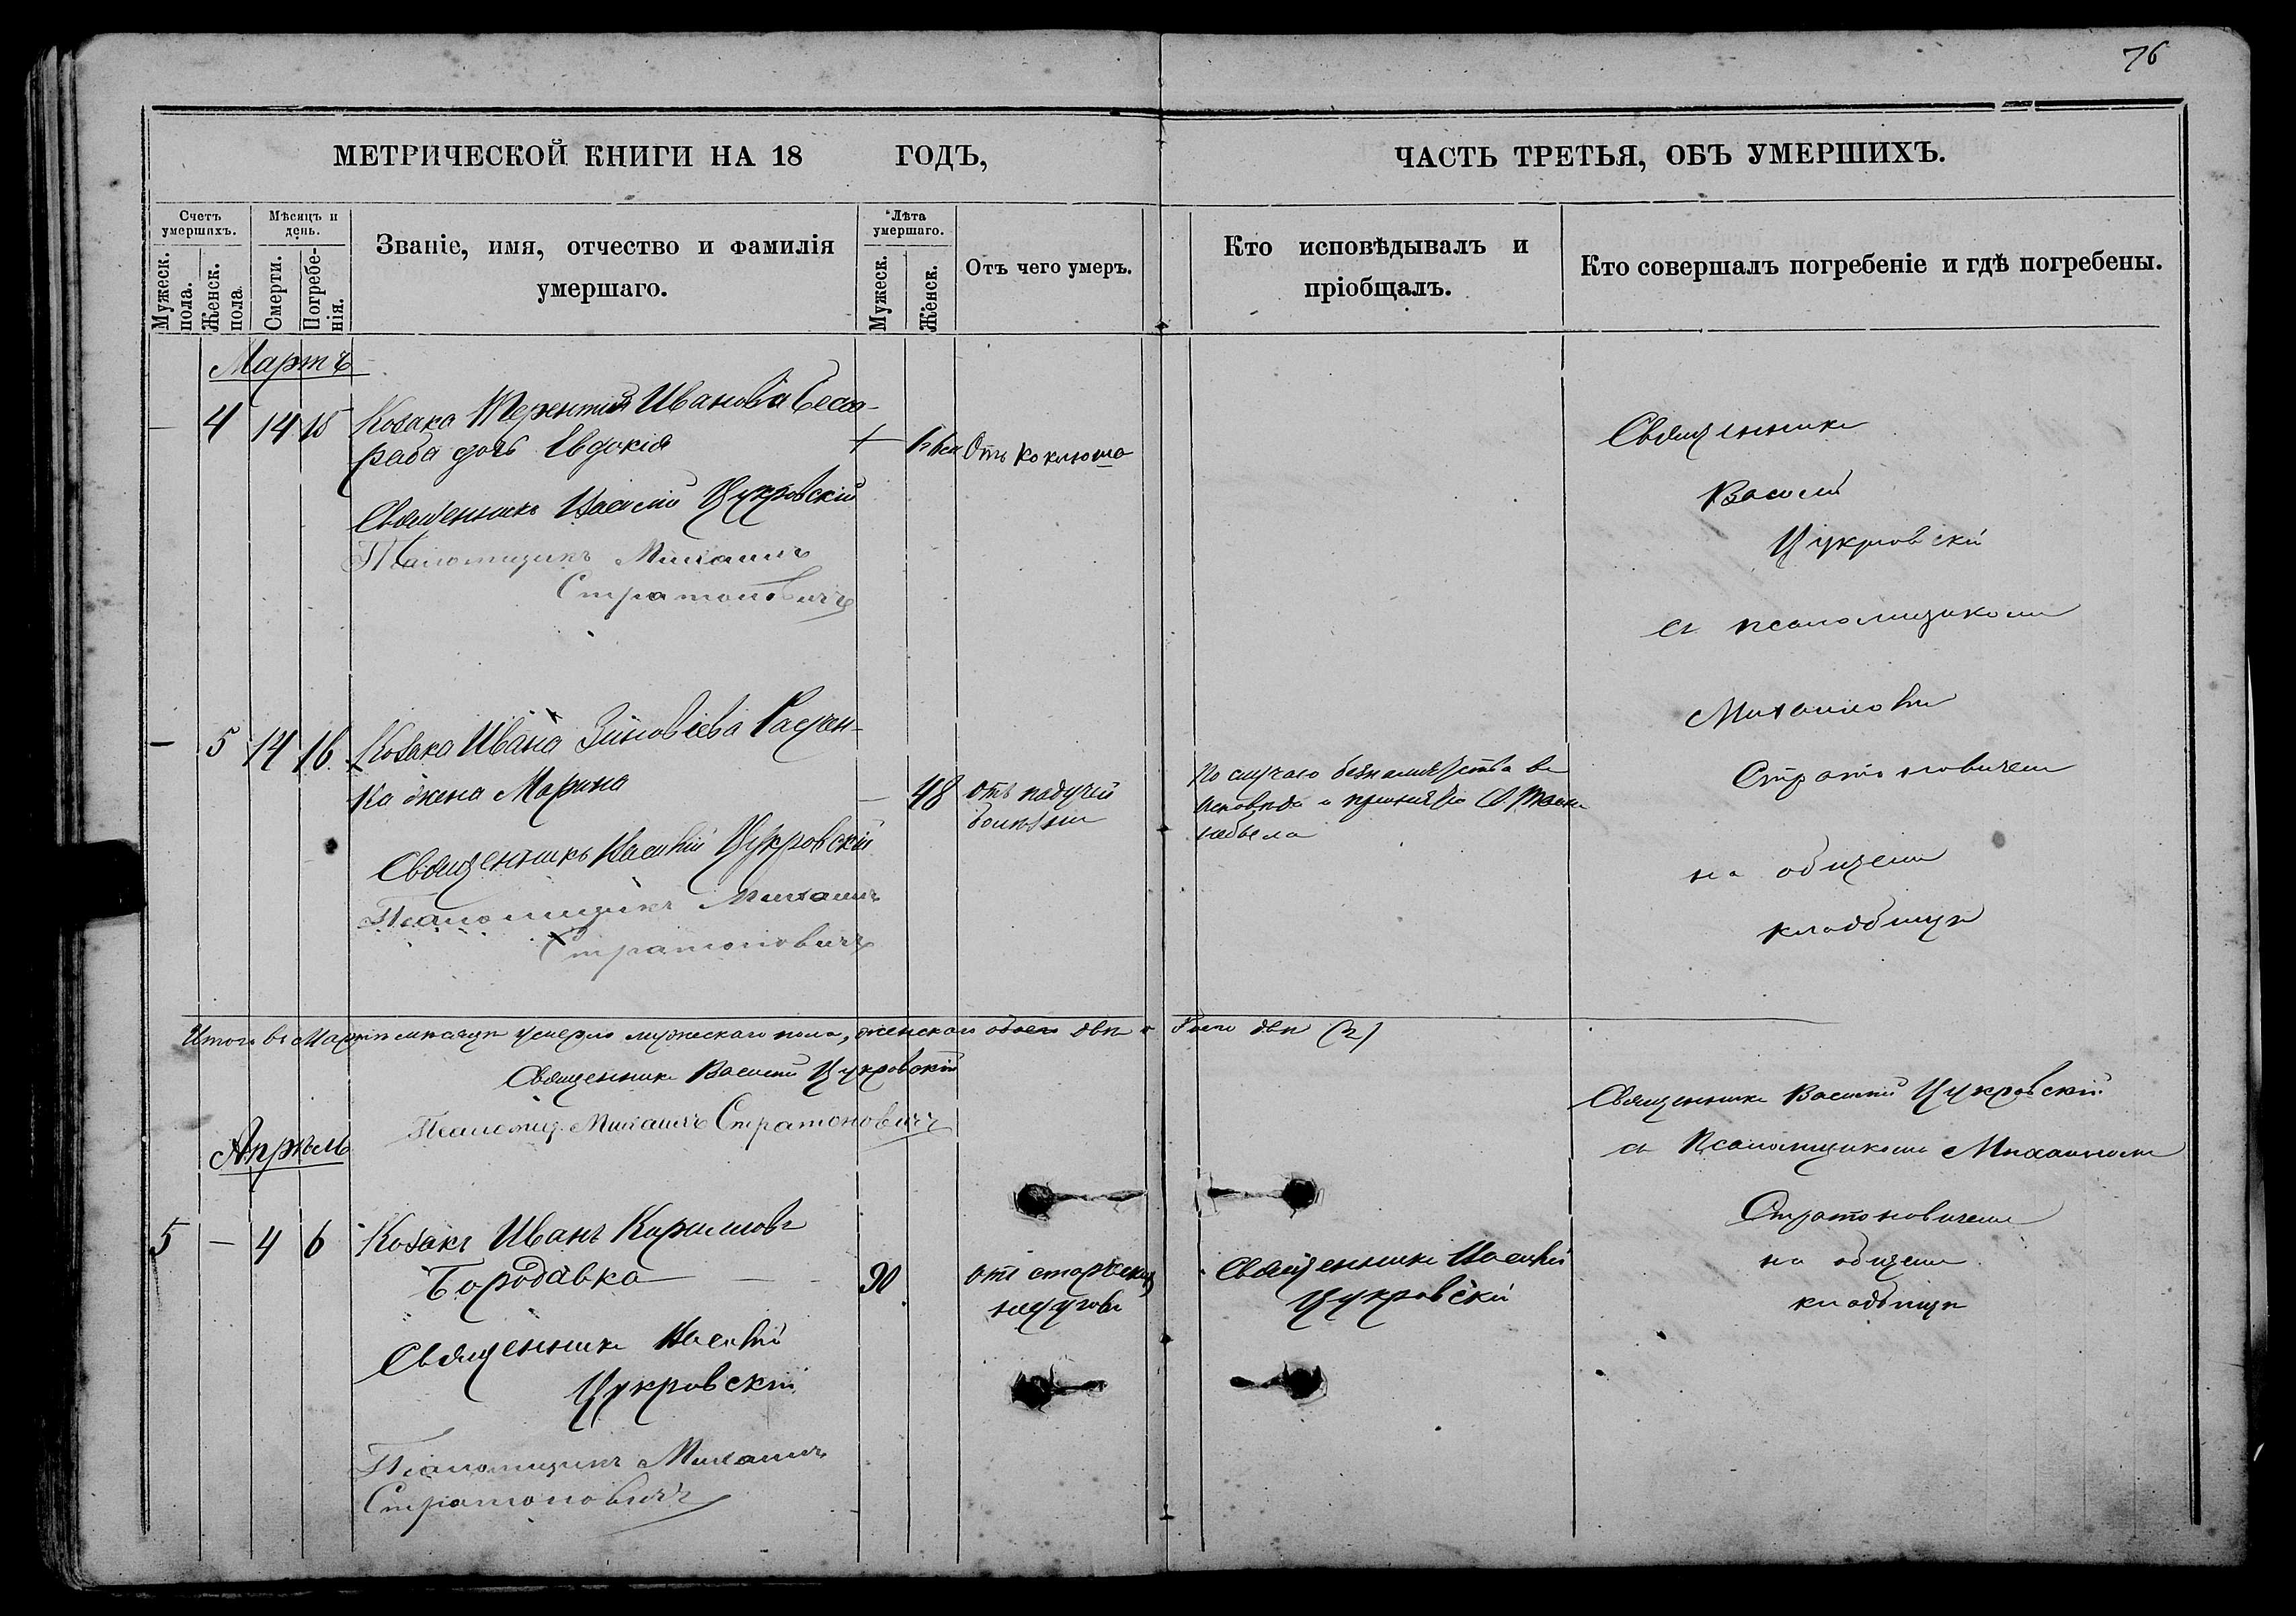 76
МЕТРИЧЕСКОЙ КНИГИ НА 18 ГОДЪ,
ЧАСТЬ ТРЕТЬЯ, ОБЪ УМЕРШИХЪ.
Счетъ умершихъ.
Мужеск. пола.
Женск. пола
Мѣсяцъ и день.
Смерти.
Погребенія.
Званіе, имя, отчество и фамилія
умершаго.
Лѣта умершаго.
Мужеск.
Женск.
Отъ чего умеръ.
Кто исповѣдывалъ и
пріобщалъ.
Кто совершалъ погребеніе и гдѣ погребены.
Мартъ
— 4 14 15 Козака Терентія Иванова
дочь Евдокія
Отъ коклюша
Священникъ Василій Цукровскій
Псаломщикъ Михаилъ
Стратоновичъ
Священникъ
Василій
Цукровскій
съ псаломщикомъ
Михаиломъ
Стратоновичемъ
на общемъ
кладбищѣ
— 5 14 16 Козака Ивана Зиновіева
ка жена Марина
— 48 отъ падучей
болѣзни
По случаю безпамятства въ
исповѣди и принятіи Св. Таинъ
небыла
Священникъ Василій Цукровскій
Псаломщикъ Михаилъ
Стратоновичъ
Итого въ Мартѣ мѣсяцѣ умерло мужескаго пола, женскаго двѣ двѣ (2)
Священникъ Василій Цукровскій
Псаломщ. Михаилъ Стратоновичъ
Апрѣль
5 — 4 6 Козакъ Иванъ Кириловъ
Бородавка
90 отъ старческихъ
недуговъ
Священникъ Василій
Цукровскій
Священникъ Василій Цукровскій
съ Псаломщикомъ Михаиломъ
Стратоновичемъ
на общемъ
кладбищѣ
Священникъ Василій
Цукровскій
Псаломщикъ Михаилъ
Стратоновичъ